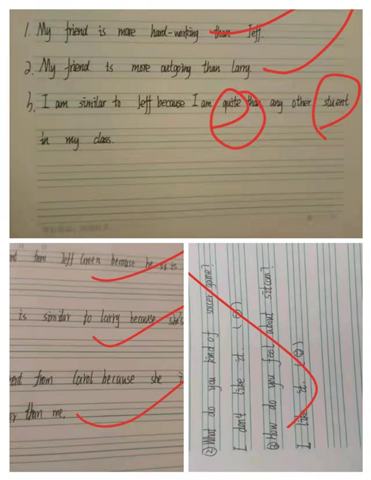 1. My friend is more hard-working than Jeff.
2. My friend is more outgoing than larry.
3. I am similar to Jeff because I am quite than any other stuent
in my class.
from Jeff Green because he is
is similar to larry because she's
from Carol because she
than me.
② What do you kind of soccer game?
I don't like it.
③ How do you feel about sitcom?
I like it.